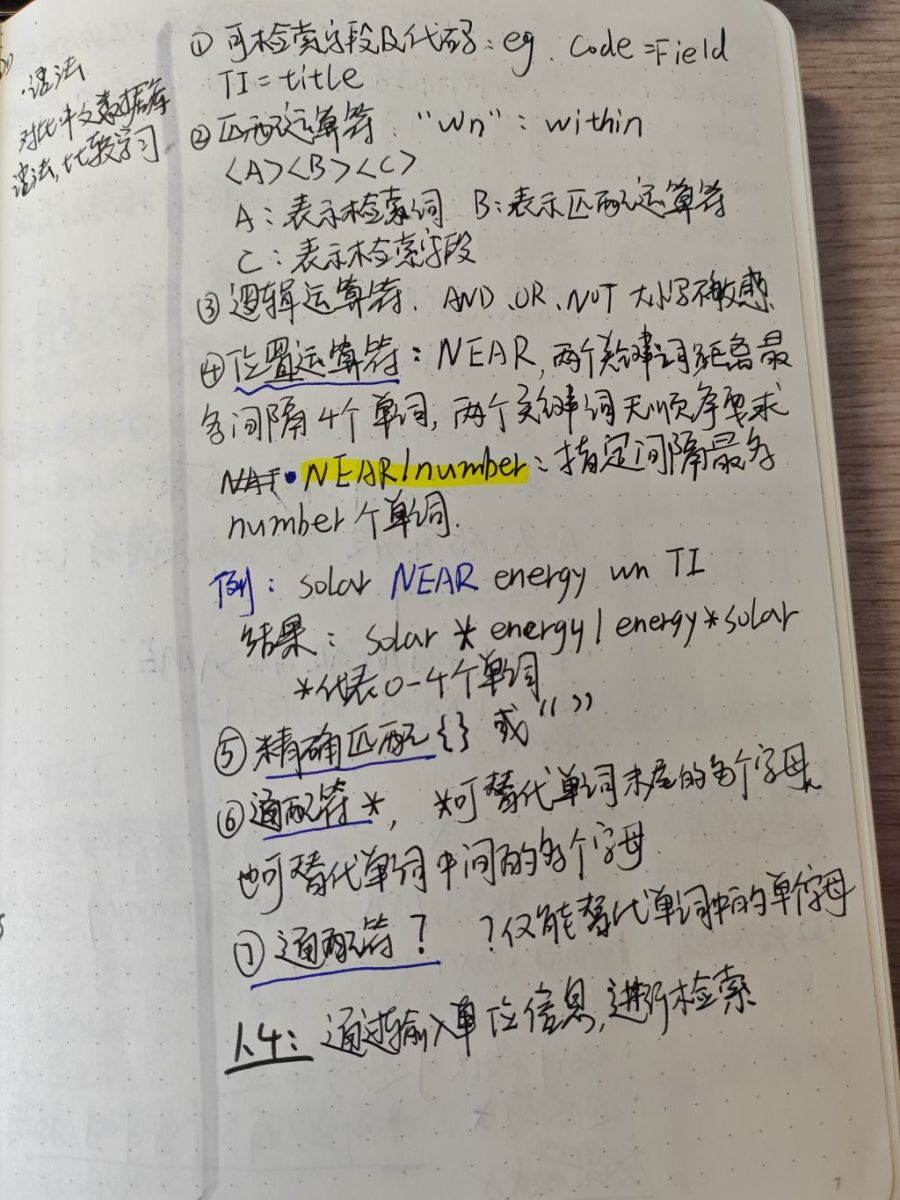 语法
对比中文数据库
语法,比较学习
① 可检索字段及代码:eg. Code=Field
TI=title
② 匹配运算符."wn":within
<A><B><C>
A:表示检索词 B:表示匹配运算符
C:表示检索字段
③ 逻辑运算符. AND、OR、NOT 大小写不敏感.
④ 位置运算符:NEAR,两个关键词距离最
多间隔4个单词,两个关键词无顺序要求
• NEAR/number:指定间隔最多
number个单词.
例:solar NEAR energy wn TI
结果:solar * energy / energy * solar
*代表0-4个单词
⑤ 精确匹配{}或“”
⑥ 通配符*,*可替代单词末尾的多个字母,
也可替代单词中间的多个字母.
⑦ 通配符? ?仅能替代单词中的单个字母
1.4:通过输入单位信息,进行检索
7